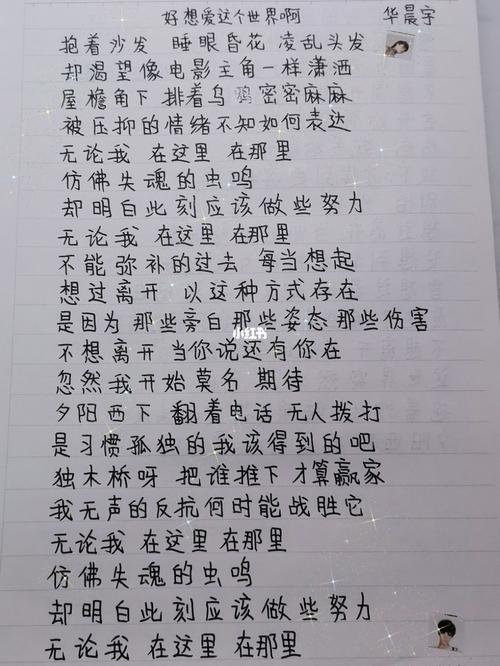 好想爱这个世界啊 华晨宇
抱着沙发 睡眼昏花 凌乱头发
却渴望像电影主角一样潇洒
屋檐角下 排着乌鸦密密麻麻
被压抑的情绪不知如何表达
无论我 在这里 在那里
仿佛失魂的虫鸣
却明白此刻应该做些努力
无论我 在这里 在那里
不能弥补的过去 每当想起
想过离开 以这种方式存在
是因为 那些旁白 那些姿态 那些伤害
小红书
不想离开 当你说还有你在
忽然我开始莫名 期待
夕阳西下 翻着电话 无人拨打
是习惯孤独的我该得到的吧
独木桥呀 把谁推下 才算赢家
我无声的反抗何时能战胜它
无论我 在这里 在那里
仿佛失魂的虫鸣
却明白此刻应该做些努力
无论我 在这里 在那里